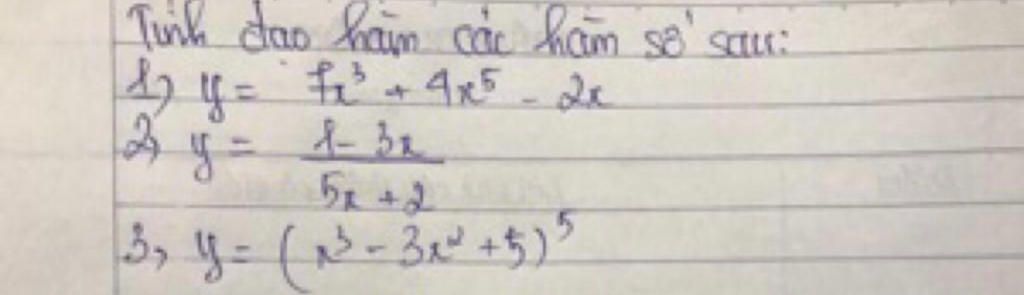 Tính đạo hàm các hàm số sau:
1) y = 7x³ + 4x⁵ - 2x
2) y = \frac{1 - 3x}{5x + 2}
3) y = (x³ - 3x² + 5)⁵